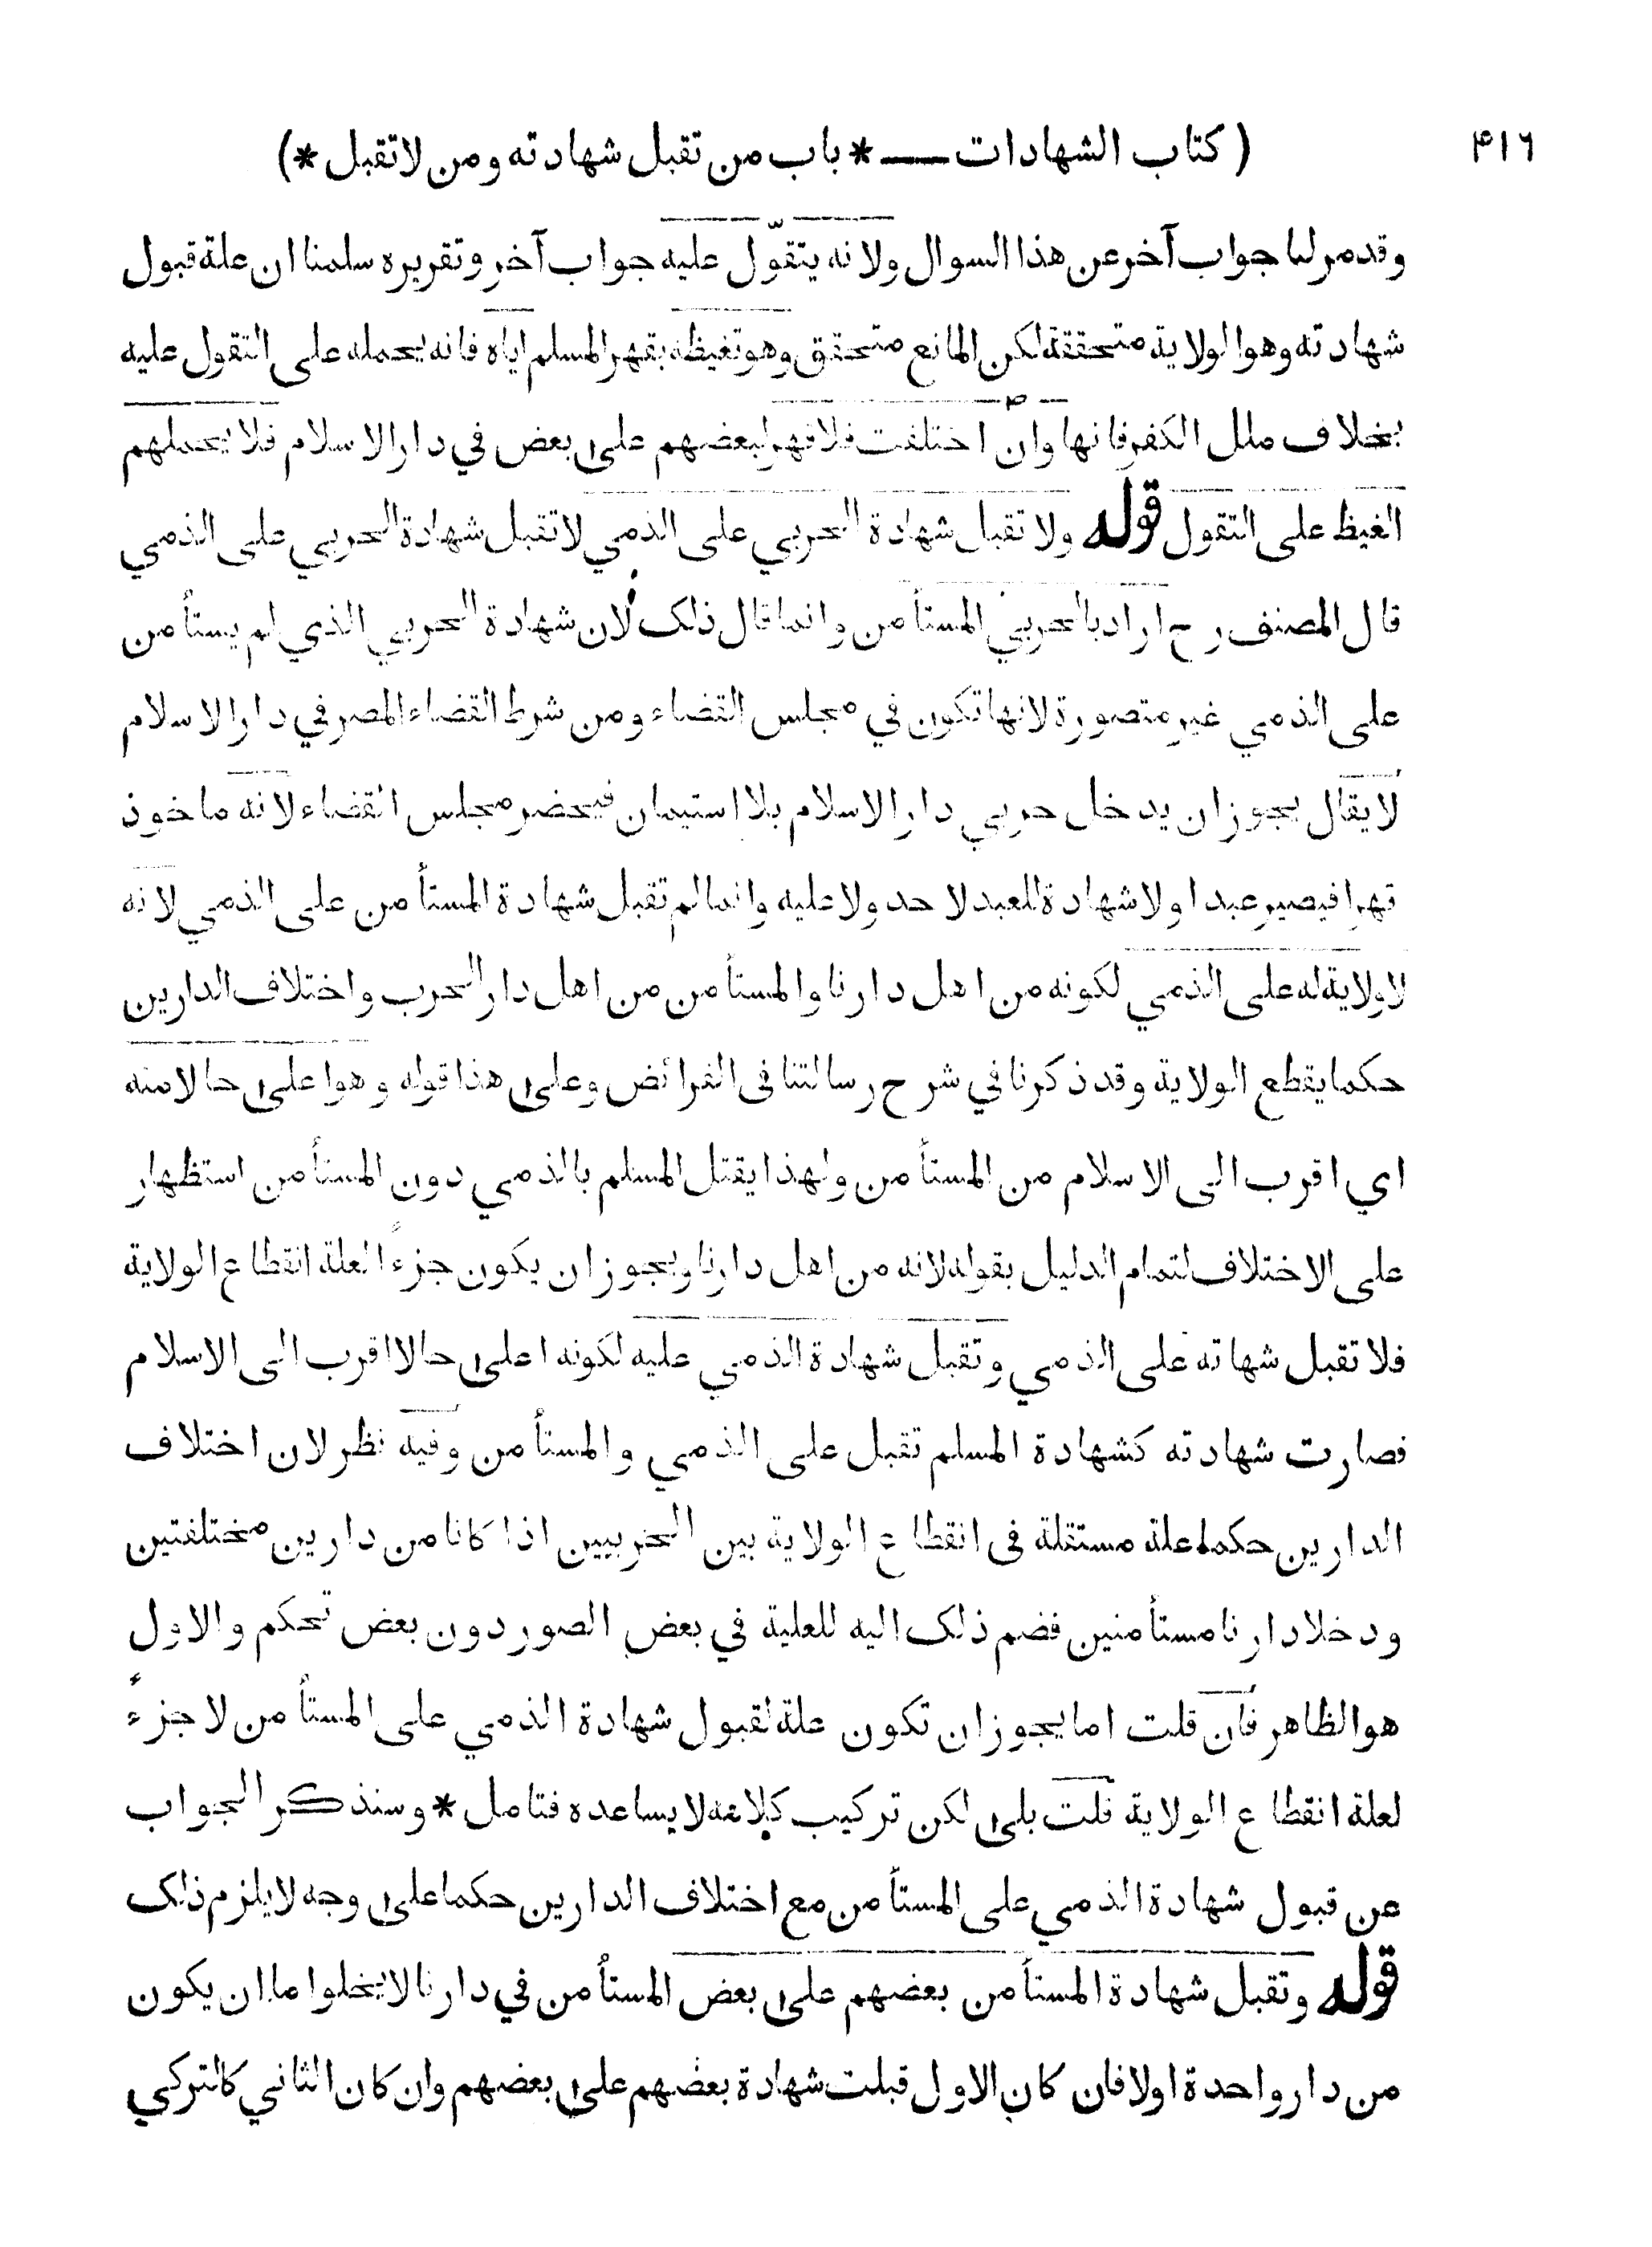 ۴۱۶
( كتاب الشهادات — * باب من تقبل شهادته ومن لا تقبل * )
وقد مر لنا جواب آخر عن هذا السوال ولانه يتقوّل عليه جواب آخر وتقريره سلمنا ان علة قبول
شهادته وهو الولاية متحققة لكن المانع متحقق وهو تغيظه بقهر المسلم اياه فانه يحمله على التقول عليه
بخلاف ملل الكفر فانها وان اختلفت فلا قهر لبعضهم على بعض في دار الاسلام فلا يحملهم
الغيظ على التقول قوله ولا تقبل شهادة الحربي على الذمي لا تقبل شهادة الحربي على الذمي
قال المصنف رح اراد بالحربي المستأمن وانما قال ذلك لان شهادة الحربي الذي لم يستأمن
على الذمي غير متصورة لانها تكون في مجلس القضاء ومن شرط القضاء المصر في دار الاسلام
لا يقال يجوز ان يدخل حربي دار الاسلام بلا استيمان فيحضر مجلس القضاء لانه ماخوذ
قهرا فيصير عبدا ولا شهادة للعبد لاحد ولا عليه وانما لم تقبل شهادة المستأمن على الذمي لانه
لا ولاية له على الذمي لكونه من اهل دارنا والمستأمن من اهل دار الحرب واختلاف الدارين
حكما يقطع الولاية وقد ذكرنا في شرح رسالتنا في الفرائض وعلى هذا قوله وهو اعلى حالا منه
اي اقرب الى الاسلام من المستأمن ولهذا يقتل المسلم بالذمي دون المستأمن استظهار
على الاختلاف لتمام الدليل بقوله لانه من اهل دارنا ويجوز ان يكون جزءً العلة انقطاع الولاية
فلا تقبل شهاته على الذمي وتقبل شهادة الذمي عليه لكونه اعلى حالا اقرب الى الاسلام
فصارت شهادته كشهادة المسلم تقبل على الذمي والمستأمن وفيه نظر لان اختلاف
الدارين حكما علة مستقلة في انقطاع الولاية بين الحربيين اذا كانا من دارين مختلفتين
ودخلا دارنا مستأمنين فضم ذلك اليه للعلية في بعض الصور دون بعض تحكم والاول
هو الظاهر فان قلت اما يجوز ان تكون علة لقبول شهادة الذمي على المستأمن لا جزءً
لعلة انقطاع الولاية قلت بلى لكن تركيب كلامه لا يساعده فتامل * وسنذكر الجواب
عن قبول شهادة الذمي على المستأمن مع اختلاف الدارين حكما على وجه لا يلزم ذلك
قوله وتقبل شهادة المستأمن بعضهم على بعض المستأمن في دارنا لا يخلوا ما ان يكون
من دار واحدة اولا فان كان الاول قبلت شهادة بعضهم على بعضهم وان كان الثاني كالتركي